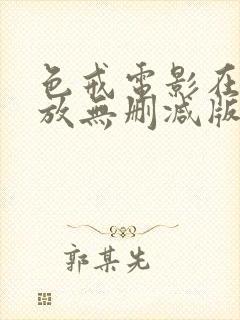 色戒電影在
放無删减版
郭某先